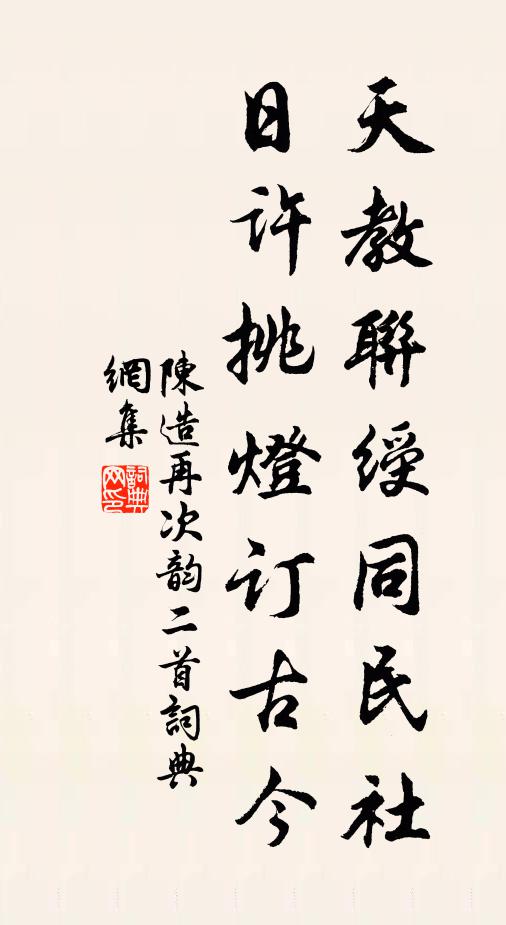 天教聯綬同民社
日許挑燈订古今
陳造再次韵二首詞典
網集
詞典
网印